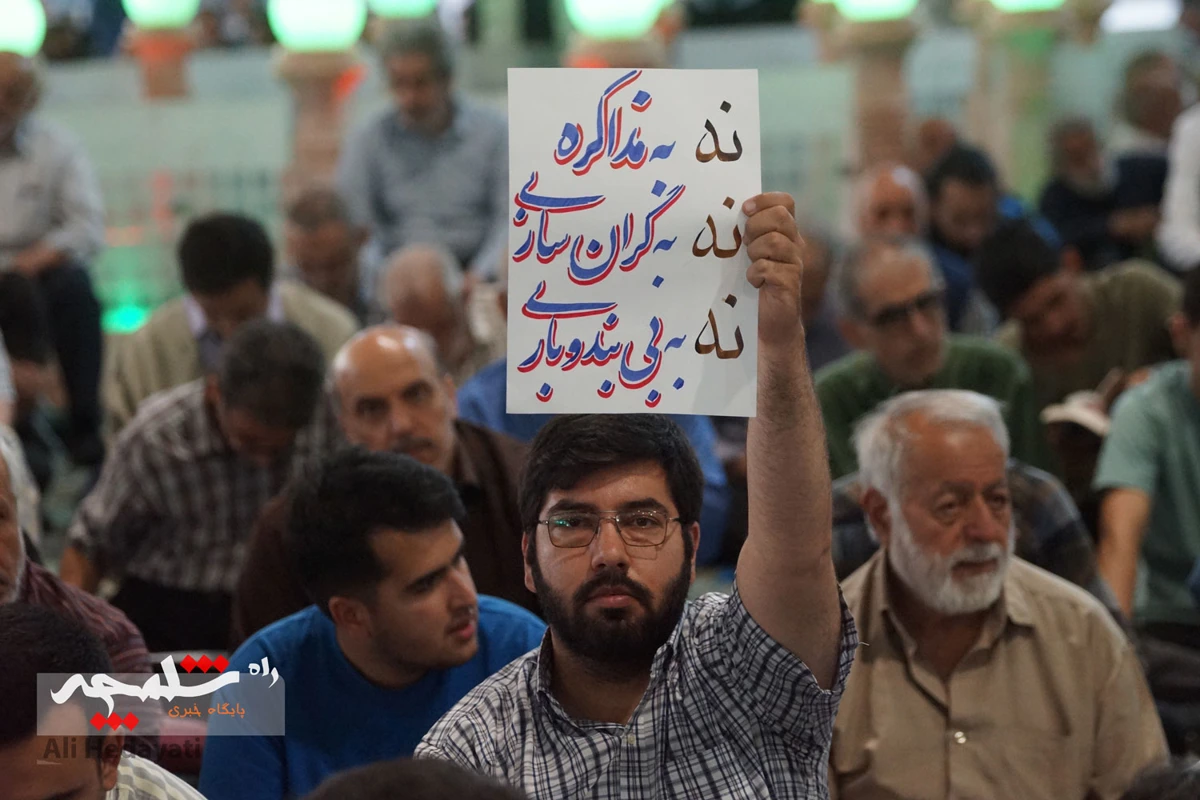 نه به مذاکره
نه به گران سازی
نه به بی بندوباری
راه شلمچه
پایگاه خبری
Ali Hedayati